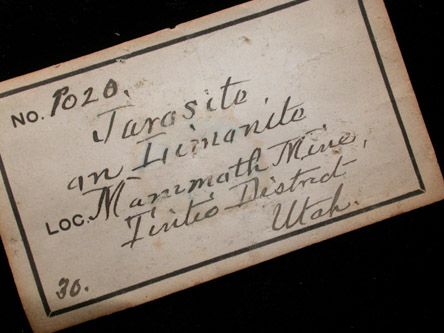 NO. 1020.
Jarosite
on Limonite
LOC. Mammoth Mine,
Tintic District
Utah.
30.